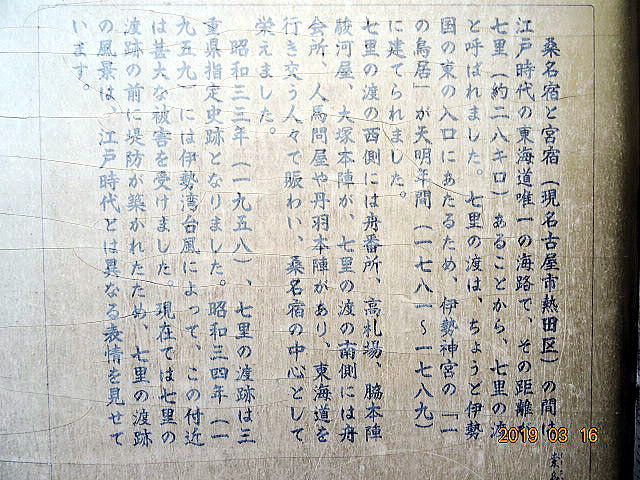 桑名宿と宮宿（現名古屋市熱田区）の間は
江戸時代の東海道唯一の海路で、その距離が
七里（約二八キロ）あることから、七里の渡
と呼ばれました。七里の渡は、ちょうど伊勢
国の東の入口にあたるため、伊勢神宮の「一
の鳥居」が天明年間（一七八一～一七八九）
に建てられました。
七里の渡の西側には舟番所、高札場、脇本陣
駿河屋、大塚本陣が、七里の渡の南側には舟
会所、人馬問屋や丹羽本陣があり、東海道を
行き交う人々で賑わい、桑名宿の中心として
栄えました。
昭和三三年（一九五八）、七里の渡跡は三
重県指定史跡となりました。昭和三四年（一
九五九）には伊勢湾台風によって、この付近
は甚大な被害を受けました。現在では七里の
渡跡の前に堤防が築かれたため、七里の渡跡
の風景は、江戸時代とは異なる表情を見せて
います。
2019 03 16